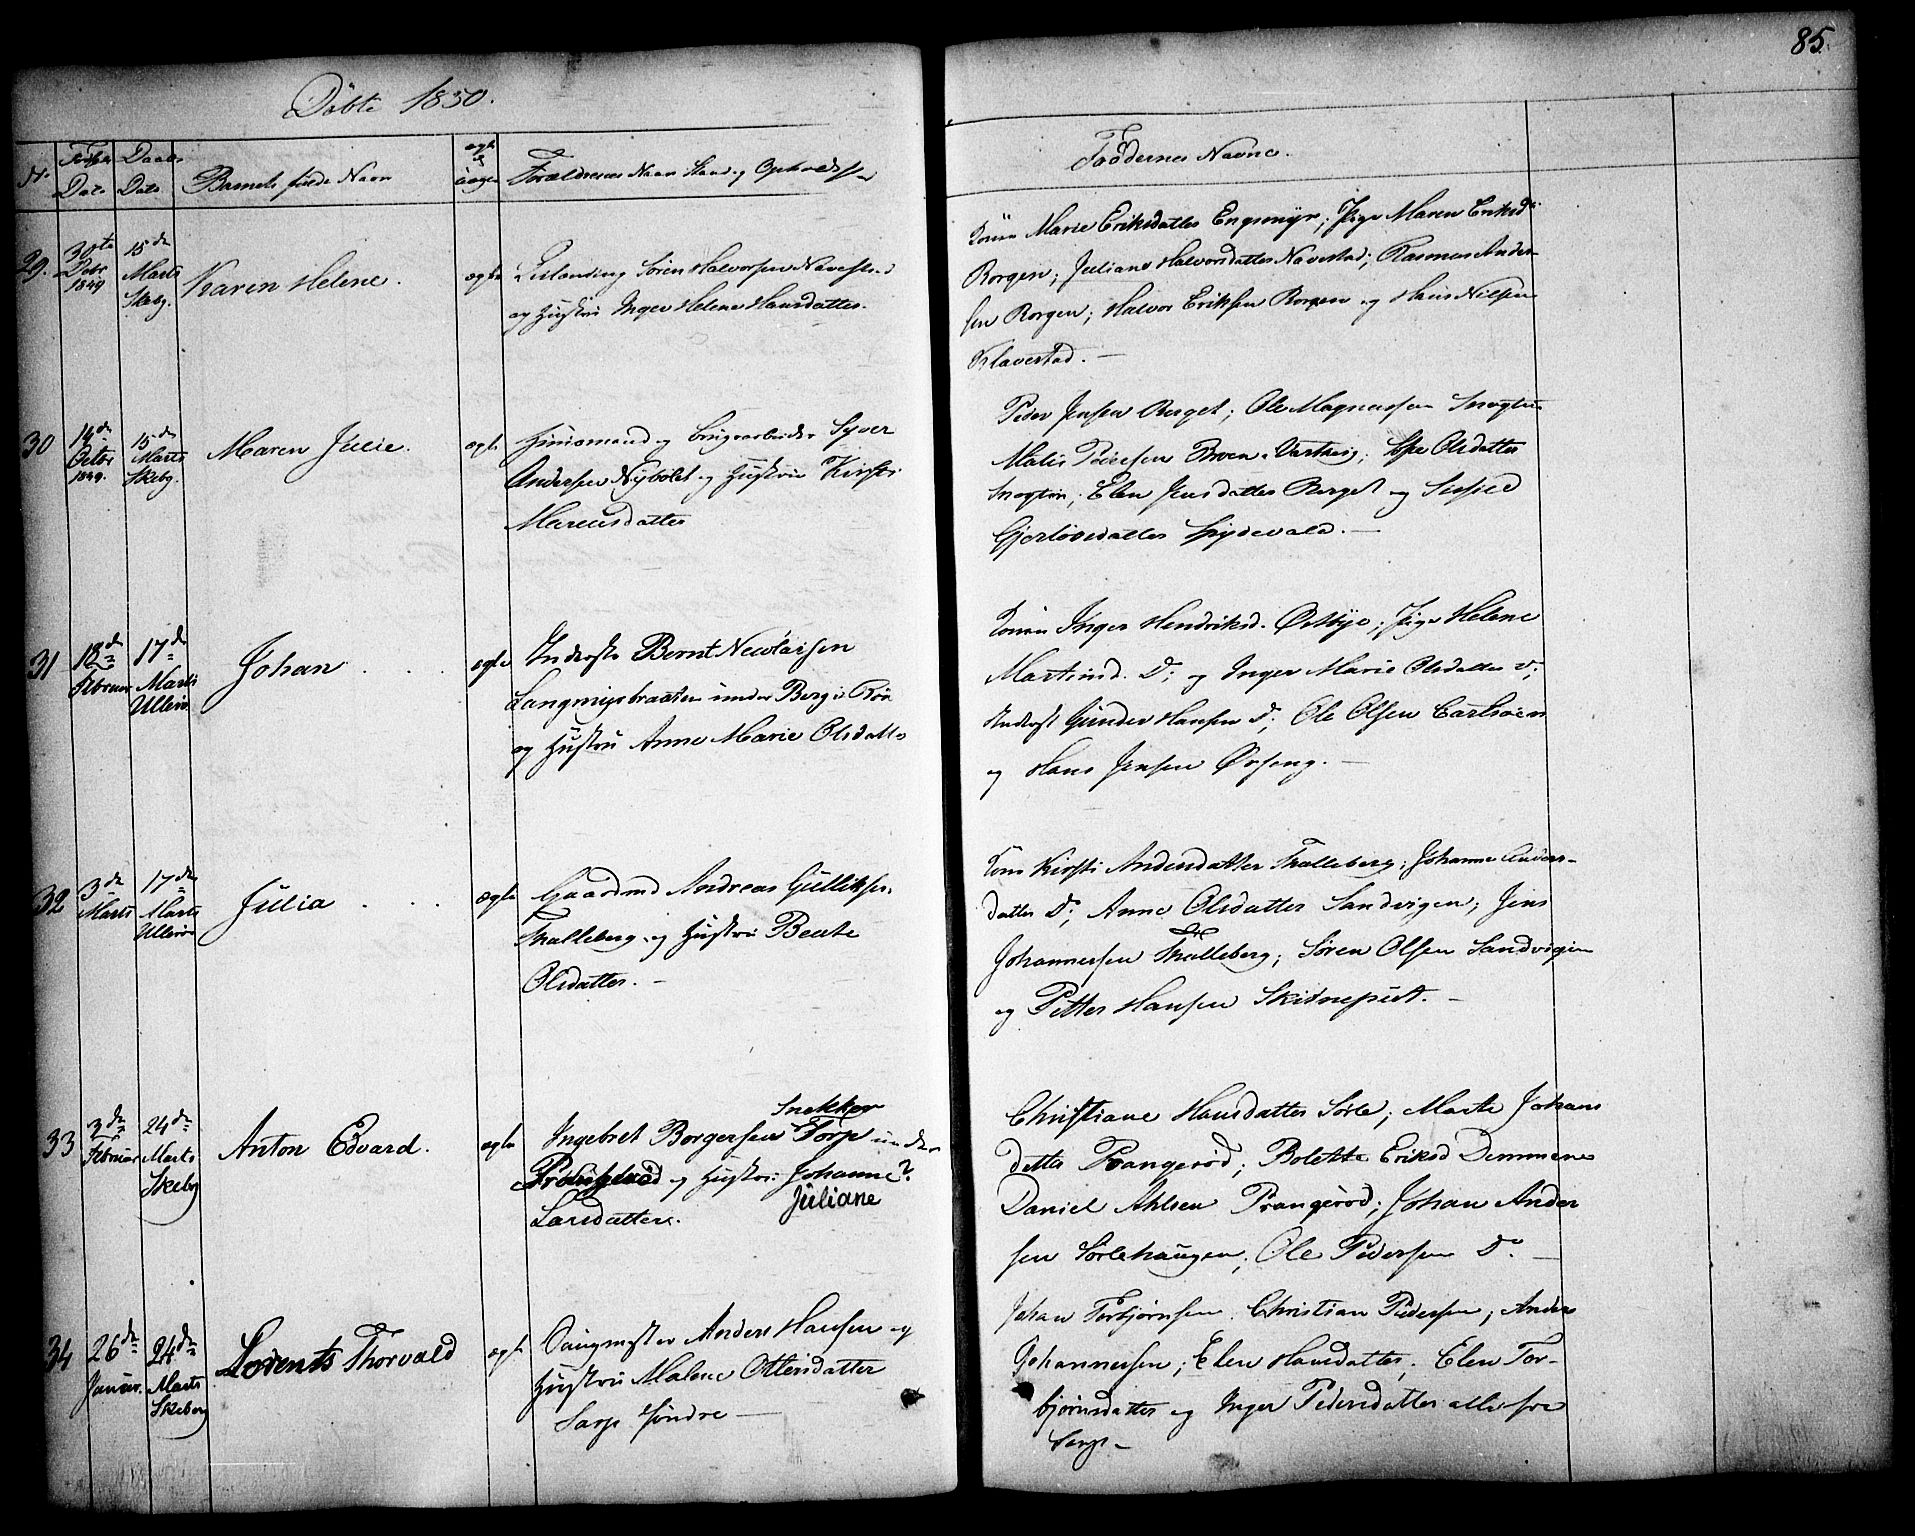 85.
Döbte 1850.
No. Fødsels Date Daabs Date Barnets fulde Navn ægte og uægte Forældrenes Navn Stand og Opholdssted
Faddernes Navne.
29. 30te Debr 1849 15de Marts Skeb. Karen Helene. ægte Søren Halvorsen Navestad
og Hustru Inger Helene Hansdatter.
Marie Eriksdatter Engsmyr; Pige Maren Eriksd:
Borgen; Juliane Halvorsdatter Navestad; Rasmus Ander-
sen Borgen; Halvor Eriksen Borgen og Hans Nilsen
Klavestad. —
30 14de Octbr 1849. 15de Marts Skeby. Maren Julie. ægte Huusmand og Brugsarbeider Syver
Andersen Nybølet og Hustru Kirsti
Marcusdatter
Peder Jensen Berget; Ole Magnussen
Pedersen Varteig; Olsdatter
Elen Jensdatter Berget og
Gjerløvsdatter
31 18de Februar 17de Marts Ullerø Johan . . . ægte Inderste Bernt Nicolaisen
Langmyrbraaten under Berg i Rø
og Hustru Anne Marie Olsdatte
Inger Hendriksd. Østbye; Pige Helene
Martinsd. Do; og Inger Marie Olsdatter Do;
Inderst Gunder Hansen Do; Ole Olsen Carlsøen
og Hans Jensen Øvseng. —
32 3de Marts 17de Marts Ullerø Julia . . . ægte Gaardmd Andreas Gulliksen
Thalleberg og Hustru Beate
Olsdatter. —
Kone Kirsti Andersdatter Thalleberg; Johanne Anders-
datter Do; Anne Olsdatter Sandvigen; Jens
Johannessen Thalleberg; Søren Olsen Sandvigen
og Petter Hansen Skidnepust. —
33 3de Februar 24de Marts Skeby Anton Edvard. ægte Ingebret Borgersen Snekker Torp under
og Hustru Johanne?
Larsdatter. Juliane
Christiane Hansdatter Sørle; Marte Johans
datter Prangerød; Bolette Eriksd Demmene
Daniel Ahlsen Prangerød; Johan Ander
sen Sørlehaugen; Ole Pedersen Do. —
34 26de Januar. 24de Marts Skeberg Lorents Thorvald ægte Saugmester Anders Hansen og
Hustru Malene Ottersdatter
Sarp søndre —
Johan Torbjørnsen. Christian Pedersen; Anders
Johannessen; Elen Hansdatter; Elen Tor-
bjørnsdatter og Inger Pedersdatter alle fra
Sarp —